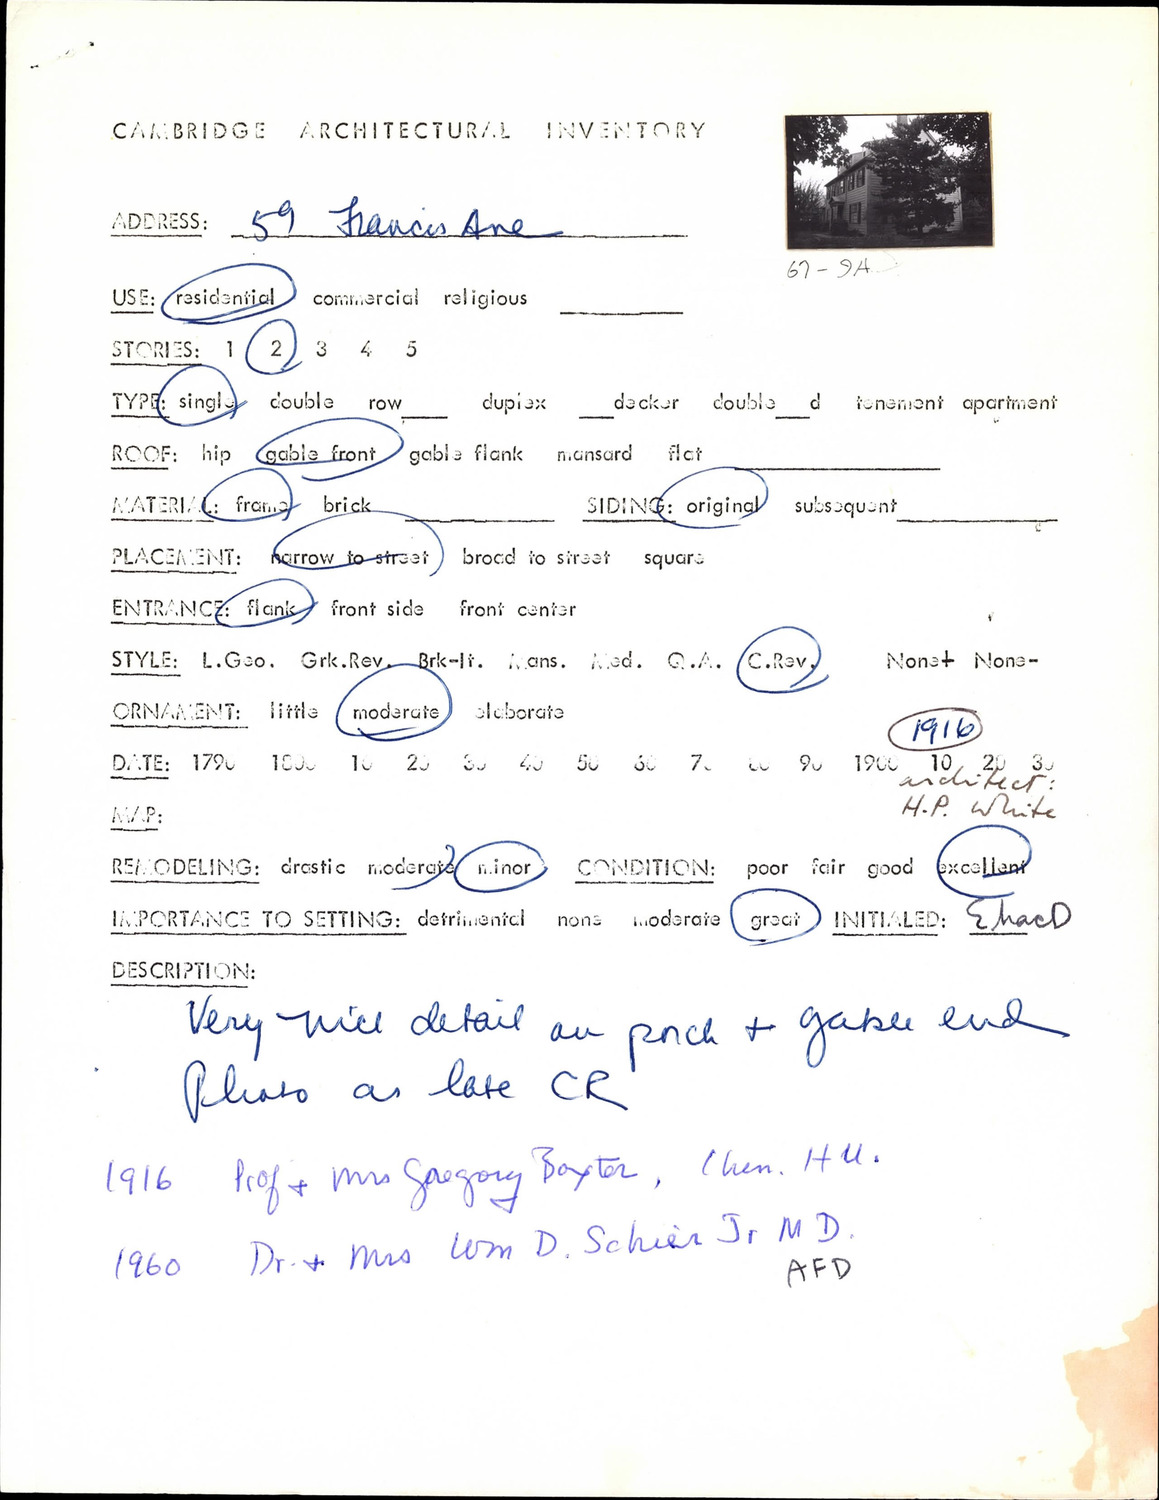 CAMBRIDGE ARCHITECTURAL INVENTORY
ADDRESS: 59 Francis Ave
67-9A
USE: residential commercial religious
STORIES: 1 2 3 4 5
TYPE: single double row___ duplex ___decker double___d tenement apartment
ROOF: hip gable front gable flank mansard flat
MATERIAL: frame brick SIDING: original subsequent
PLACEMENT: narrow to street broad to street square
ENTRANCE: flank front side front center
STYLE: L.Geo. Grk.Rev. Brk-It. Mans. Med. Q.A. C.Rev. None+ None-
ORNAMENT: little moderate elaborate
1916
DATE: 1790 1800 10 20 30 40 50 60 70 80 90 1900 10 20 30
architect:
H.P. White
MAP:
REMODELING: drastic moderate minor CONDITION: poor fair good excellent
IMPORTANCE TO SETTING: detrimental none moderate great INITIALED: EMacD
DESCRIPTION:
Very nice detail on porch + gable end
Photo as late CR
1916 Prof + Mrs Gregory Baxter, Chem. H U.
1960 Dr. + Mrs Wm D. Jr M D.
AFD